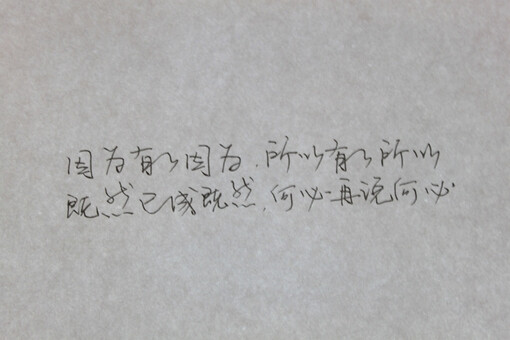 因为有人因为，所以有人所以
既然已成既然，何必再说何必